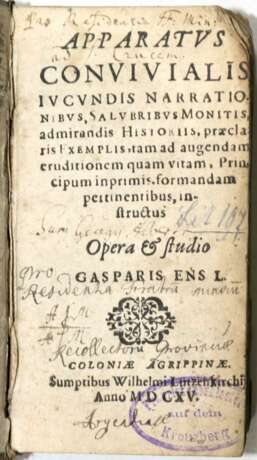 Pro Residentia FF. Min.
ad Crucem
APPARATVS
CONVIVIALIS
IVCVNDIS NARRATIO-
NIBVS, SALVBRIBVS MONITIS,
admirandis HISTORIIS, præcla-
ris EXEMPLIS, tam ad augendam
eruditionem quam vitam, Prin-
cipum inprimis, formandam
pertinentibus, in-
structus
Opera & studio
GASPARIS ENS L.
Pro
Residentia
Recollectorum
COLONIÆ AGRIPPINÆ.
Sumptibus Wilhelmi Lutzenkirchi
Anno M D C XV.
auf dem
Kreuzberg